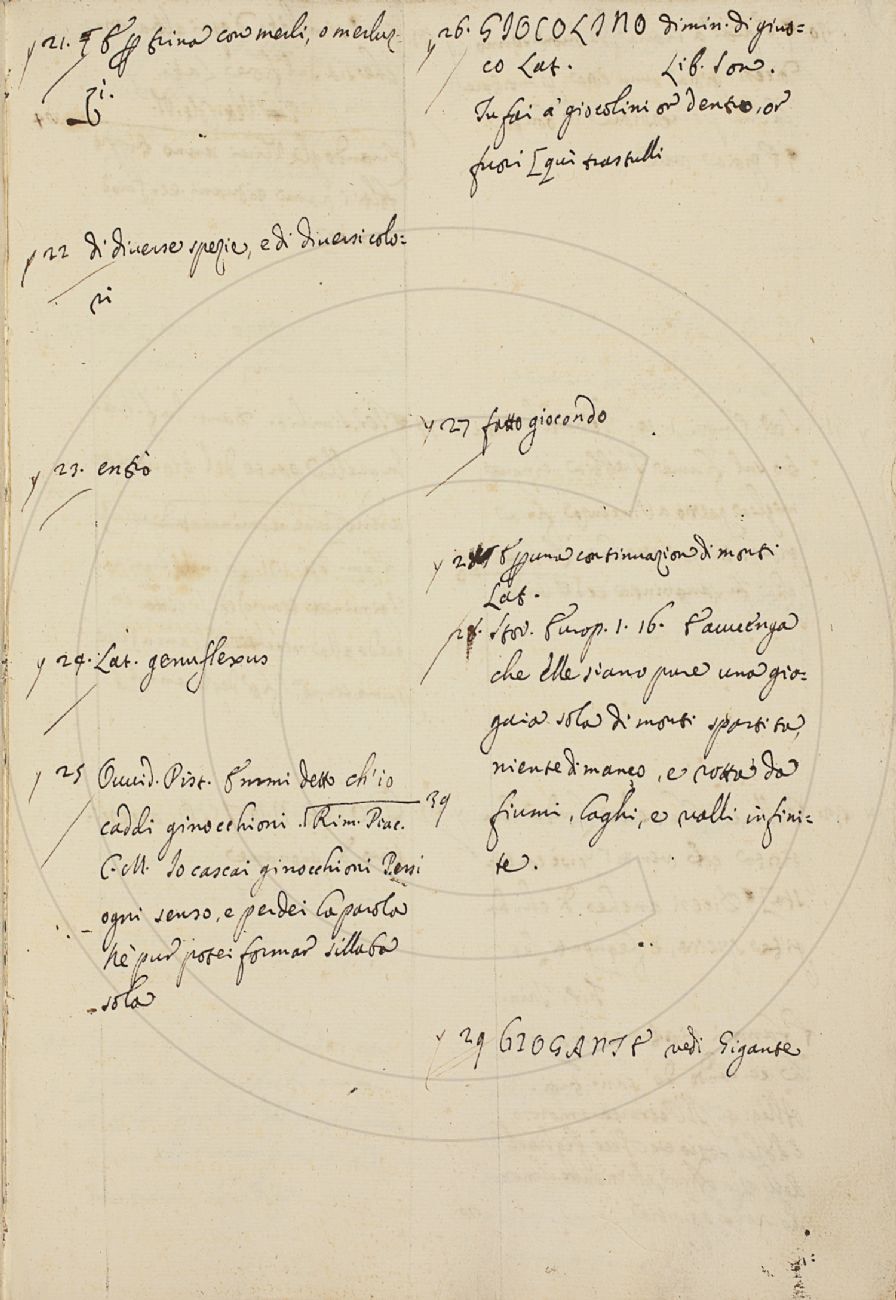 21. E trina con merli, o merluz-
zi.
22 di diverse spezie, e di diversi colo=
ri
23. entrò
24. Lat. genuflexus
25 Ouuid. Pist. E mmi detto ch'io
caddi ginocchioni. Rim. Piac.
C. M. Io cascai ginocchioni Persi
ogni senso, e perdei la parola
Nè pur potei formar sillaba
sola
26. GIOCOLINO dimin. di giuo=
co Lat. Lib. Son.
Tu fai a' giocolini or dentro, or
fuori [qui trastulli
27 fatto giocondo
28 E una continuazion di monti
Lat.
Stor. Europ. 1. 16. E avvenga
che elle siano pure una gio=
gaia sola di monti spartita,
niente di manco, e rotta da
39
fiumi, laghi, e valli infini=
te.
29 GIOGANTE vedi Gigante